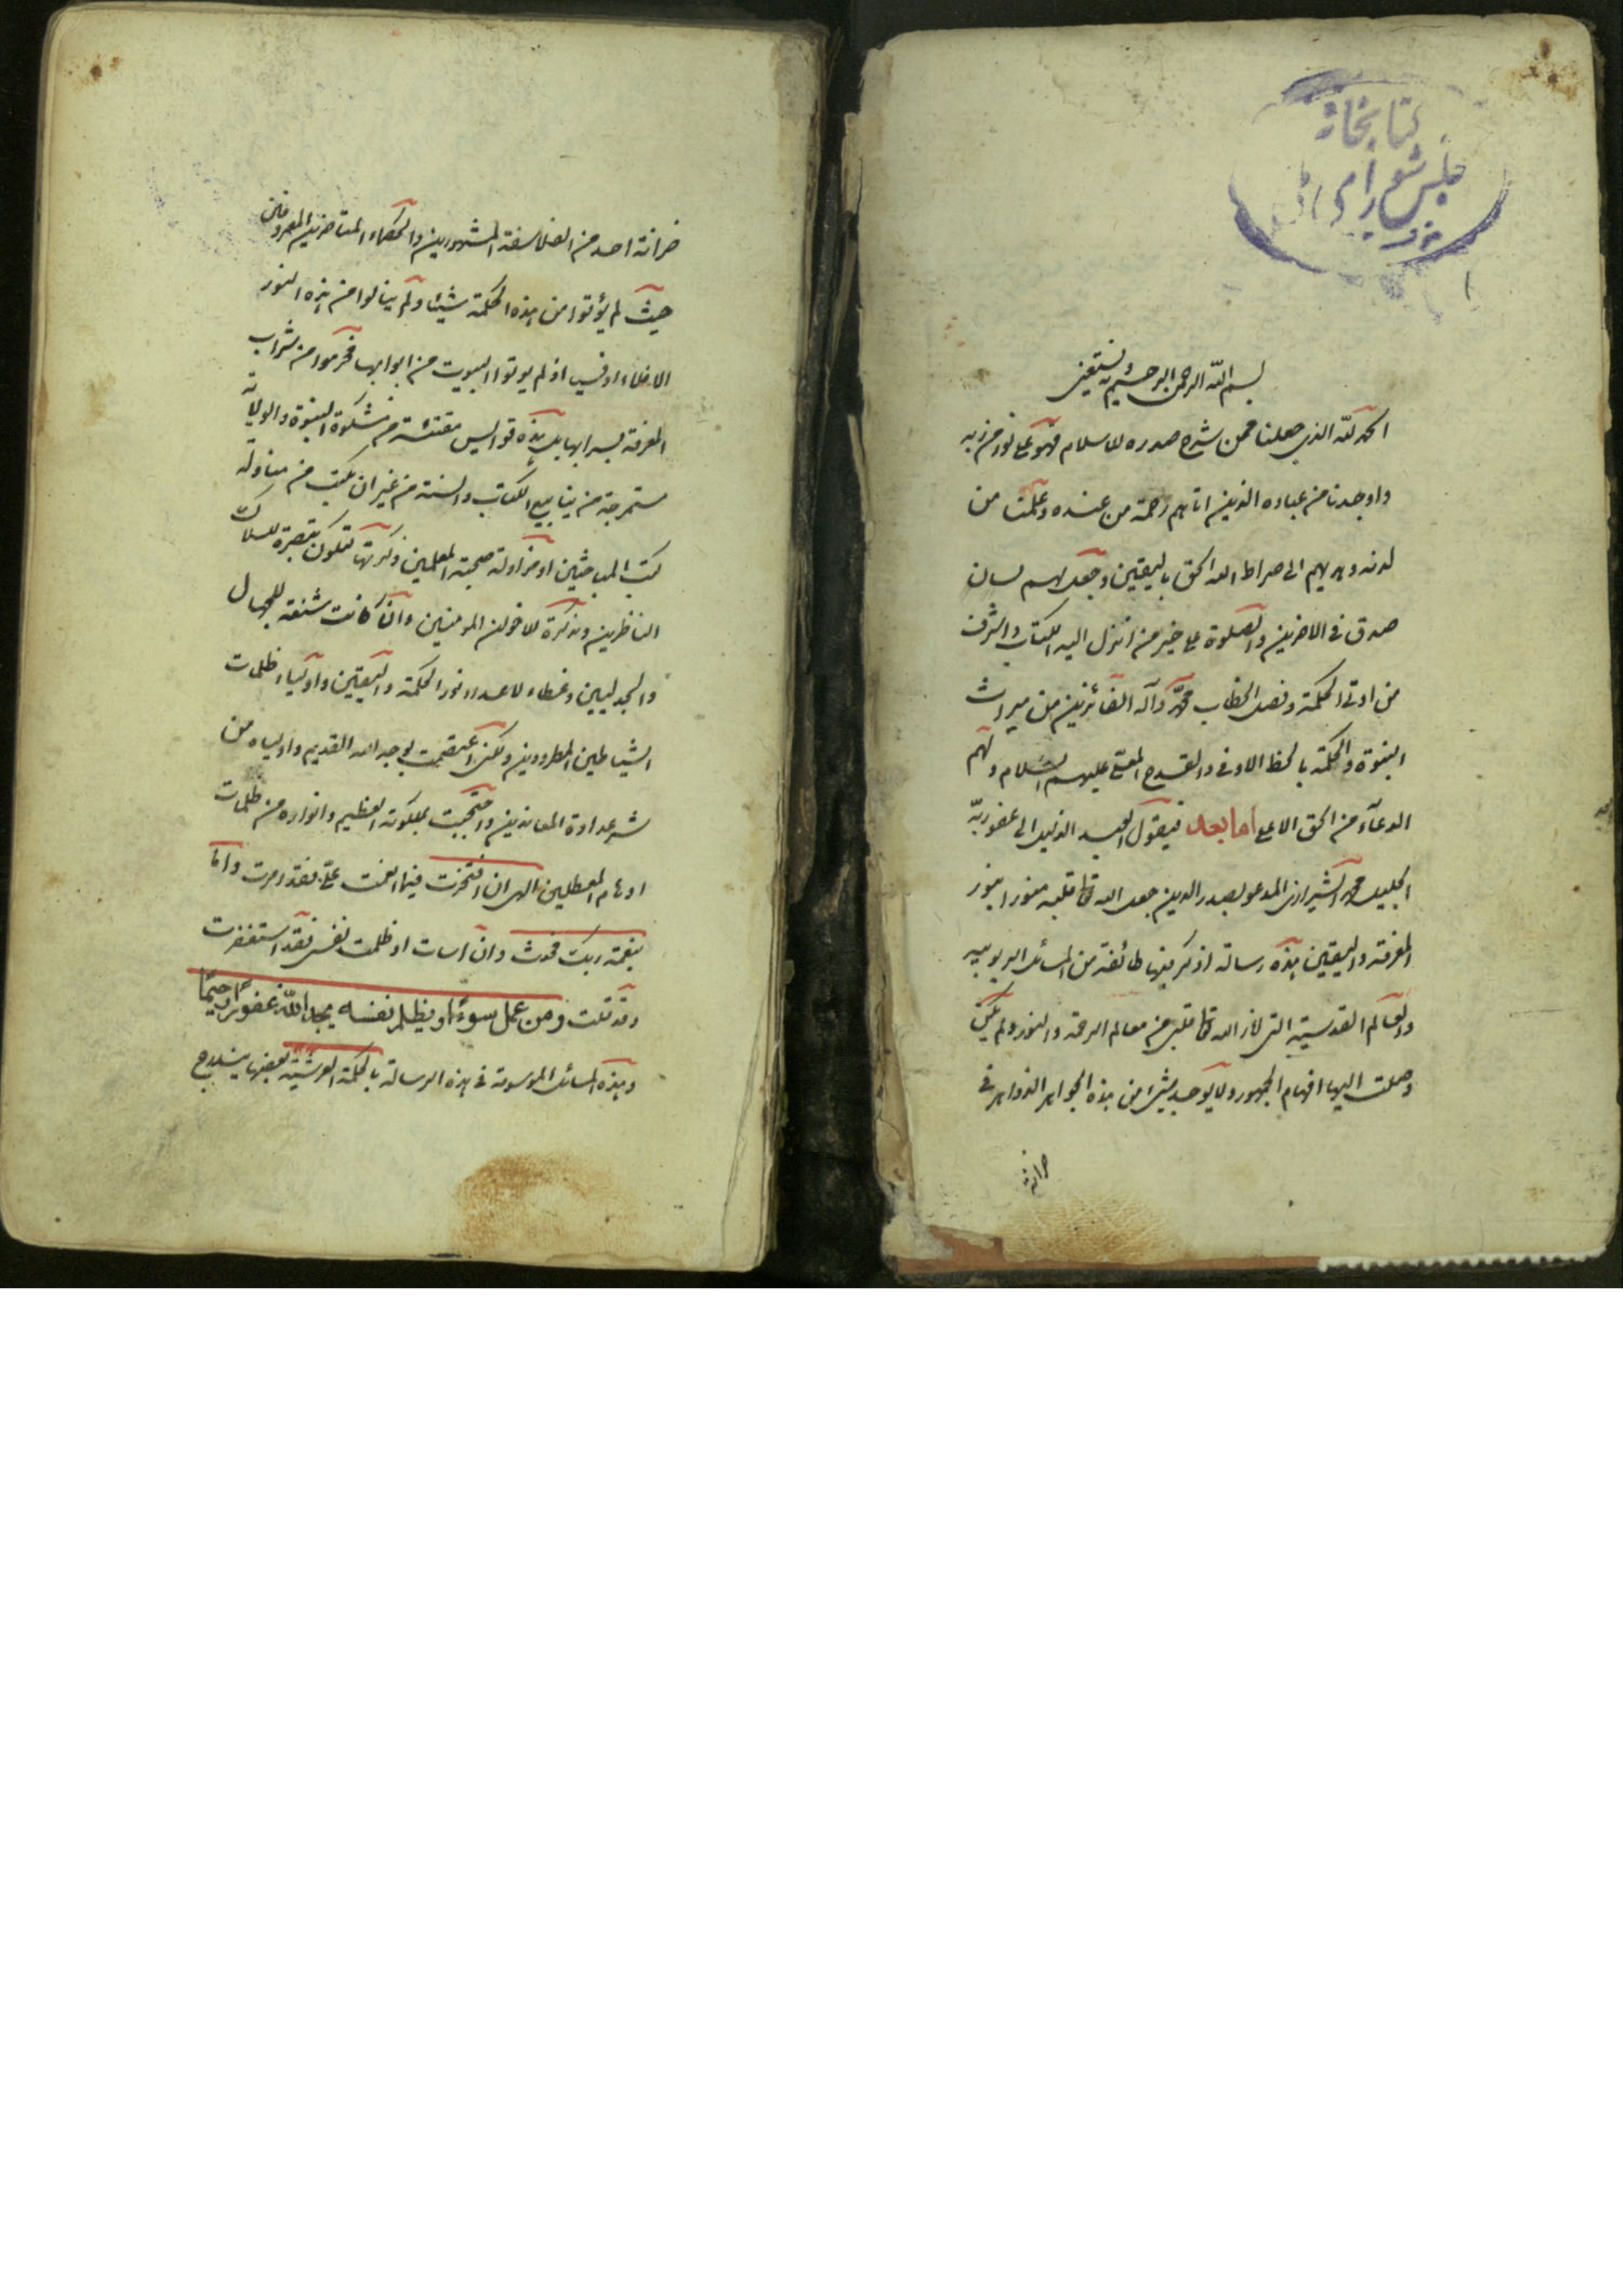 كتابخانه
مجلس شورای ملی
۱
بسم الله الرحمن الرحيم وبه نستعين
الحمد لله الذي جعلنا ممن شرح صدره للاسلام فهو على نور من ربه
واوجدنا من عباده الذين اتاهم رحمة من عنده وعلمنا من
لدنه وهديهم الى صراط الله الحق باليقين وجعل لهم لسان
صدق في الاخرين والصلوة على خير من انزل اليه الكتاب واشرف
من اوتى الحكمة وفصل الخطاب محمد وآله الفائزين من ميراث
النبوة والحكمة بالحظ الاوفى والقدح المعلى عليهم السلام ولهم
الدعاء من الحق الاعلى اما بعد فيقول العبد الذليل الى عفو ربه
الجليل محمد الشيرازى المدعو بصدر الدين جعل الله تعا قلبه منورا بنور
المعرفة واليقين هذه رسالة اذكر فيها طائفة من المسائل الربوبية
والمعالم القدسية التي انار الله تعا قلبى من معالم الرحمة والنور ولم يكن
وصلت اليها افهام الجمهور ولا يوجد شىء من هذه الجواهر الزواهر في
خزانة
خزانة احد من الفلاسفة المشهورين والحكماء المتاخرين المعروفين
حيث لم يؤتوا من هذه الحكمة شيئا ولم ينالوا من هذه النور
الا ظلاء اوفي‍ اذ لم يوتوا البيوت من ابوابها فحرموا من شراب
المعرفة بسرابها بل هذه قوابس مقتبسة من مشكوة النبوة والولاية
مستخرجة من ينابيع الكتاب والسنة من غير ان يكتب من مناولة
كتب المباحثين او مزاولة صحبة المعلمين ذكرتها لتكون تبصرة للسلاك
الناظرين وتذكرة للاخوان المومنين وان كانت شنعة للجهال
والجدليين وغطاء لاعداء نور الحكمة واليقين واولياء ظلمات
الشياطين المطرودين ولكن اعتصمت بوجه الله القديم واولياه من
شر عداوة المعاندين واحتجبت بملكوته العظيم وانواره من ظلمات
اوهام المعطلين الهى ان افتخرت فيما انعمت على فقد امرت واما
بنعمة ربك فحدث وان اسات او ظلمت نفسى فقد استغفرت
وقد قلت ومن عمل سوءًا او يظلم نفسه يجد الله غفورًا رحيمًا
وهذه المسائل الموسومة في هذه الرسالة بالحكمة العرشية بعضها يندرج